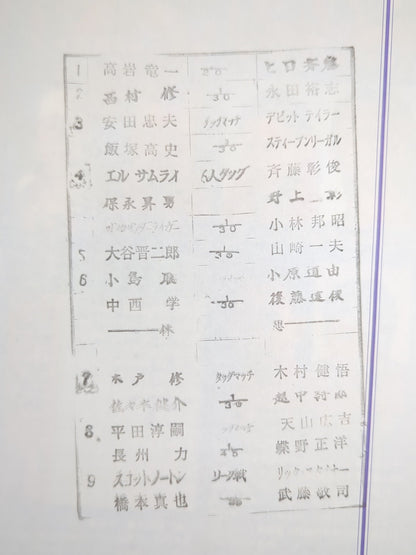 1 高岩竜一
2 西村 修 1/30 永田裕志
3 安田忠夫 タッグマッチ デビット テイラー
飯塚高史 1/30 スティーブンリーガル
4 エル サムライ 6人タッグ 斉藤彰俊
保永昇男 野上 彰
1/30 小林邦昭
5 大谷晋二郎 1/30 山崎一夫
6 小島 聡 小原道由
中西 学 1/30 後藤達俊
休 憩
7 木戸 修 タッグマッチ 木村健悟
佐々木健介 1/30 越中詩郎
8 平田淳嗣 天山広吉
長州 力 蝶野正洋
9 スコットノートン リーグ戦
橋本真也 武藤敬司